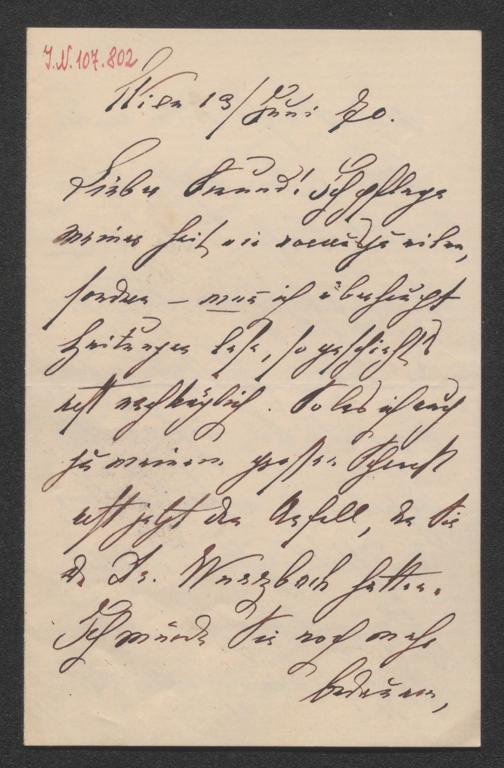 J.N. 107.802
Wien 13/Juni 70.
Lieber Freund! Ich pflege
meiner Zeit nie vorauszueilen,
sondern – wenn ich überhaupt
Zeitungen lese, so geschieht's
erst nachträglich. So las ich auch
zu meinem großen Schreck
erst jetzt den Unfall, den Sie
Dr. Wurzbach hatten.
Ich würde Sie noch mehr
bedauern,